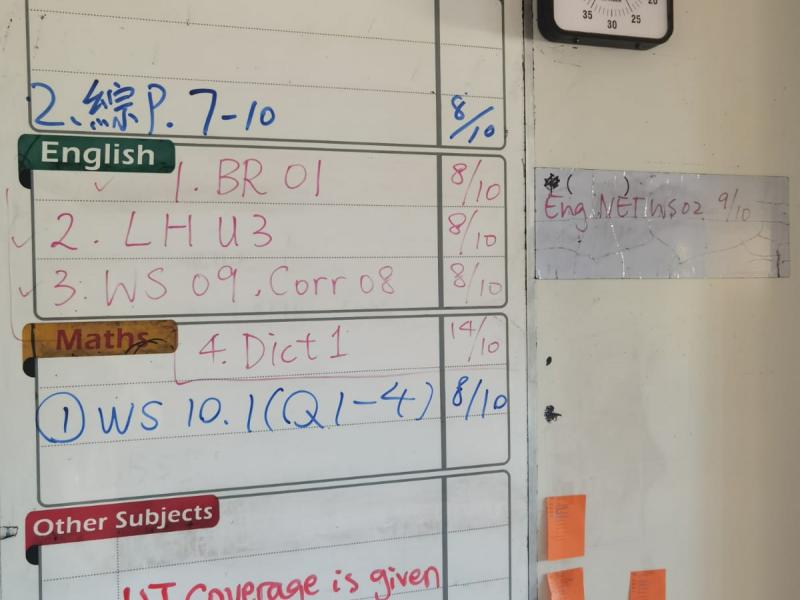 35 30 25 20
2. 綜P. 7-10 8/10
English
1. BR 01 8/10
2. LH U3 8/10
3. WS 09, Corr 08 8/10
Maths
4. Dict 1 14/10
① WS 10.1 (Q1-4) 8/10
Other Subjects
UT coverage is given
( )
Eng NET WS02 9/10